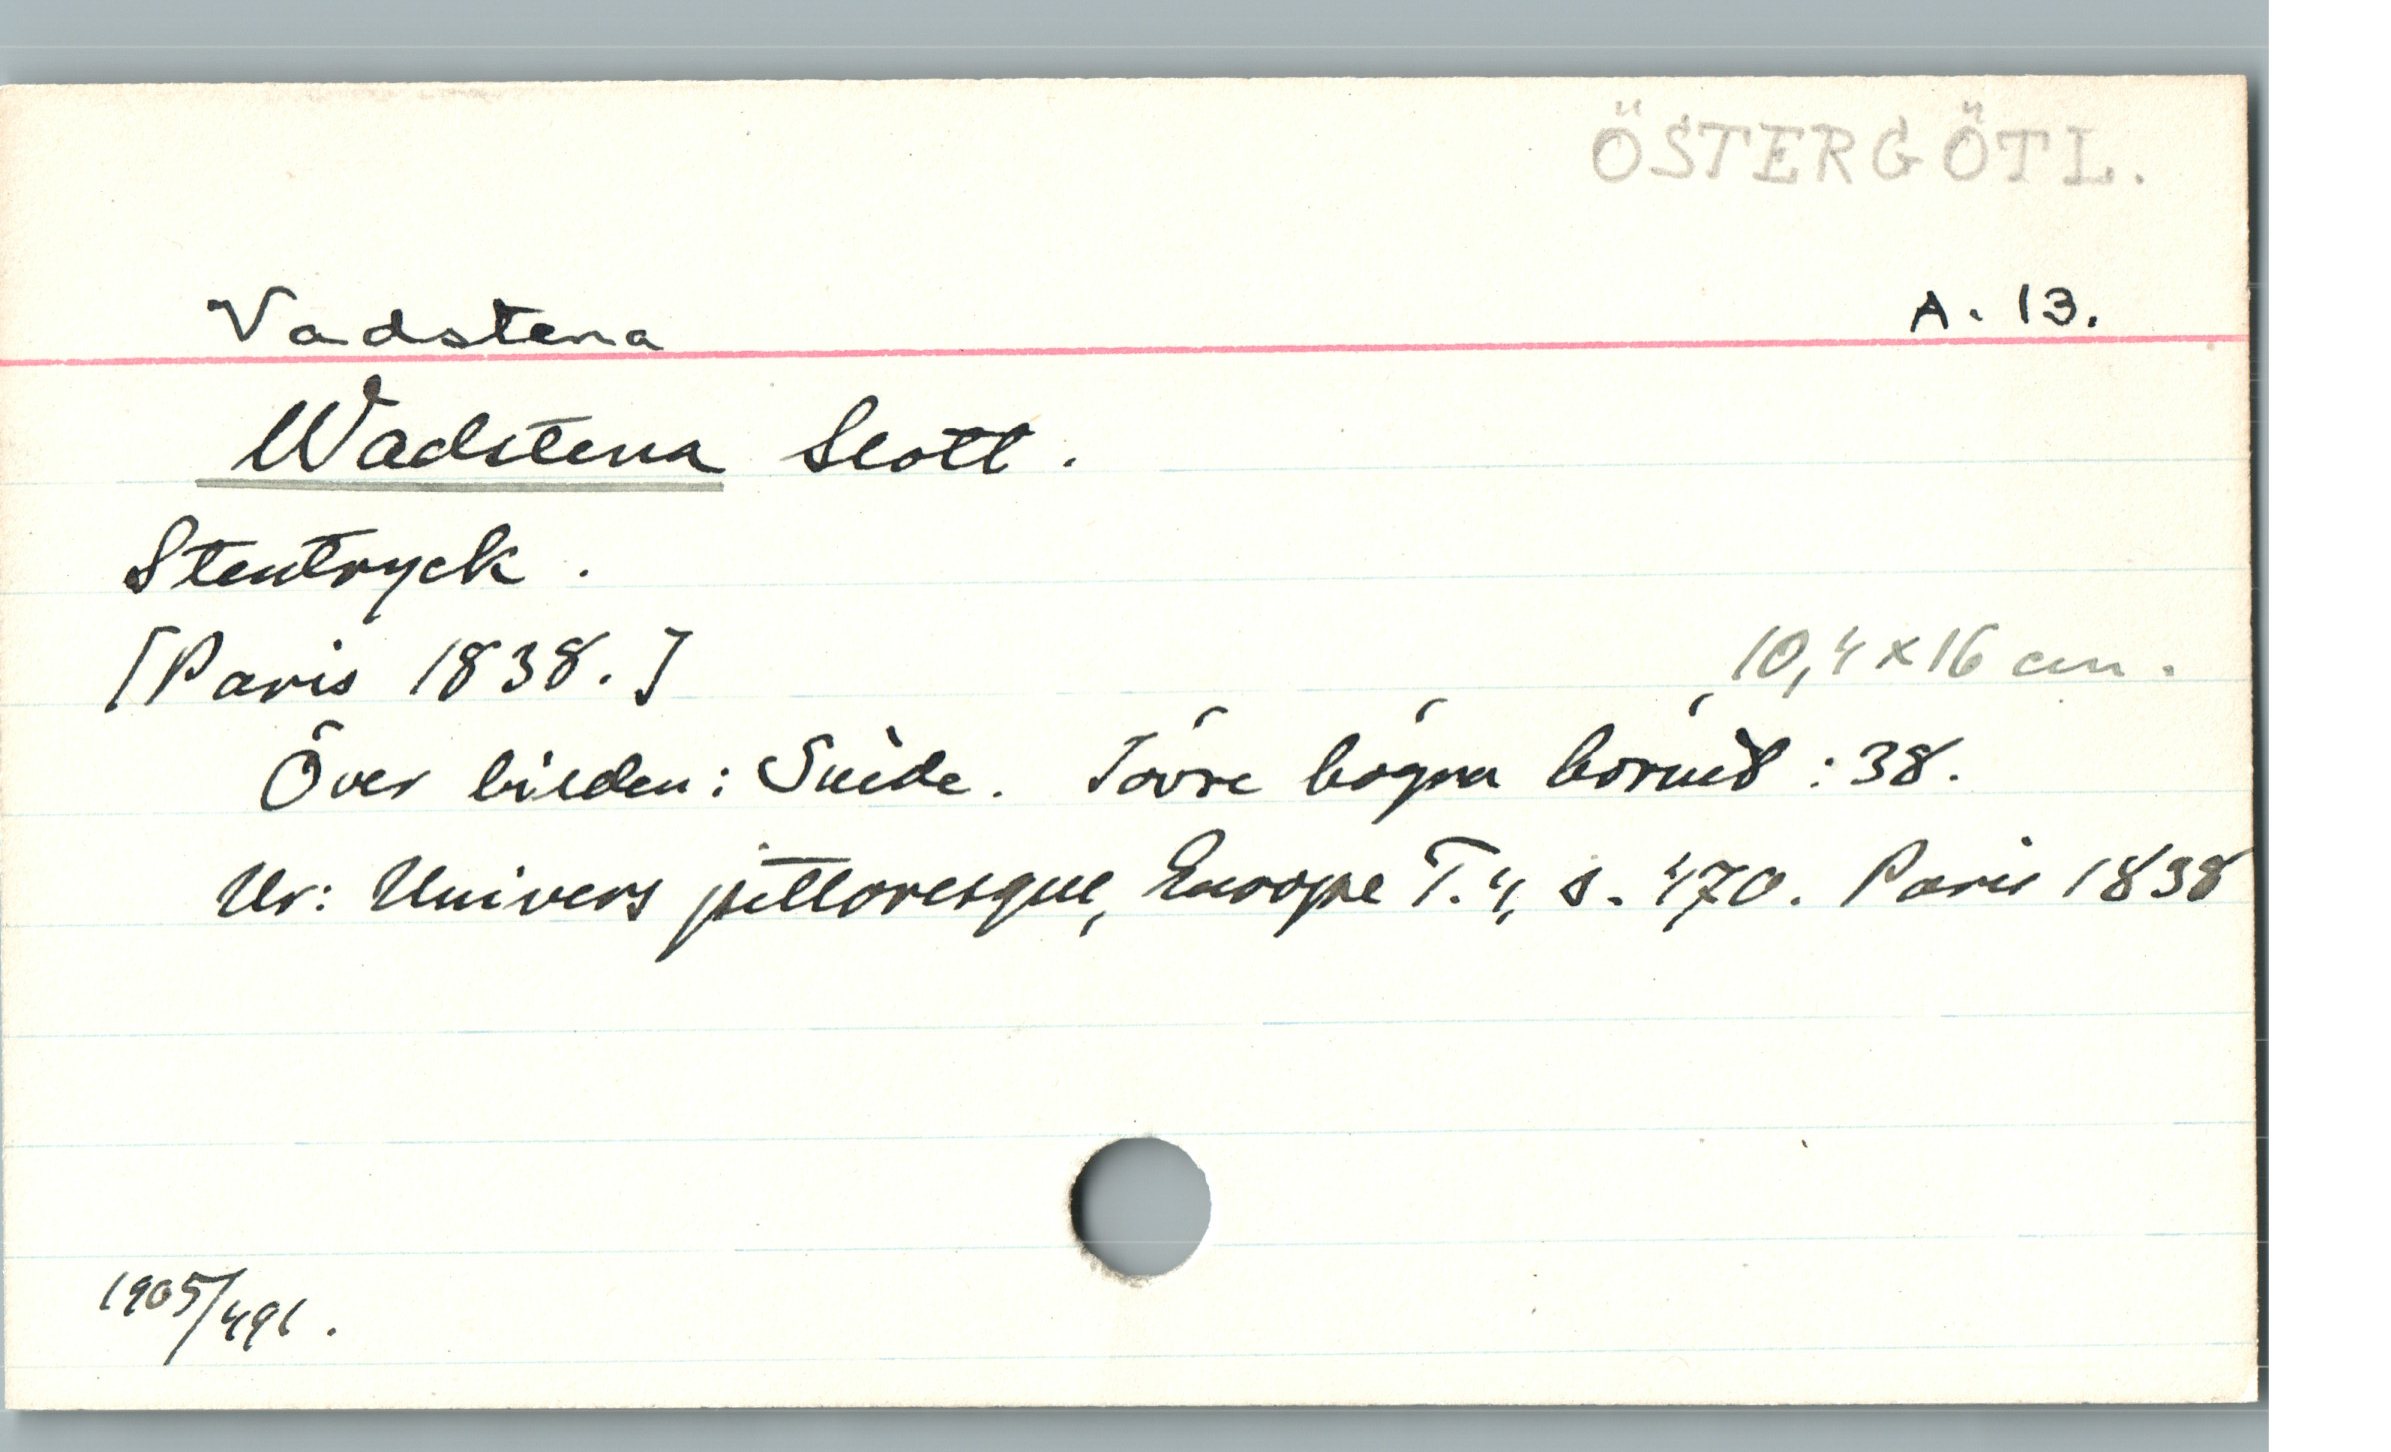 ÖSTERGÖTL.
Vadstena A. 13.
Wadstena Slott.
Stentryck.
[Paris 1838.] 10,4 x 16 cm.
Över bilden: Suède. I övre högra hörnet: 38.
Ur: Univers pittoresque, Europe T. 4, s. 470. Paris 1838
1905/491.